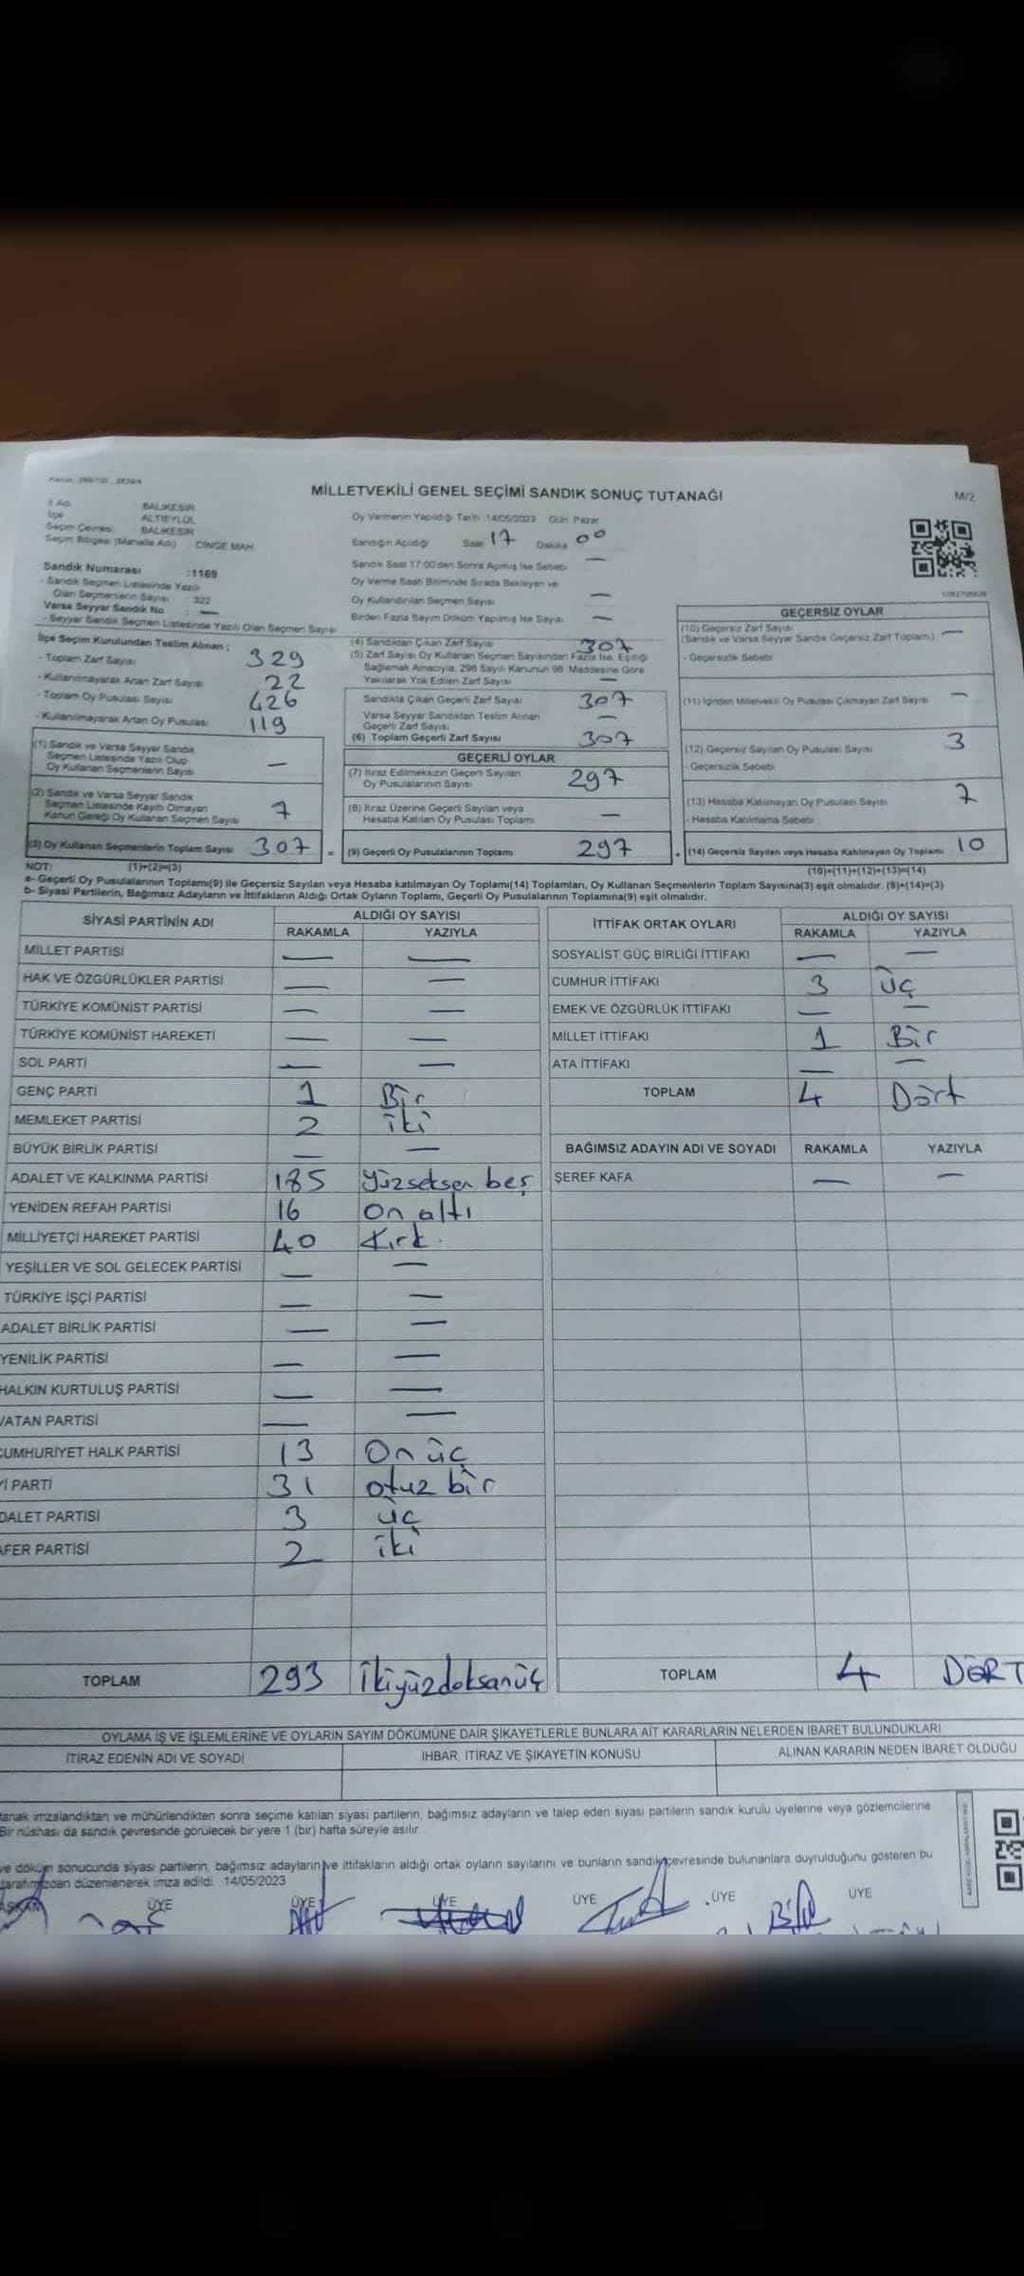 MİLLETVEKİLİ GENEL SEÇİMİ SANDIK SONUÇ TUTANAĞI
M/2
İl Adı BALIKESİR
İlçe ALTIEYLÜL
Seçim Çevresi BALIKESİR
Seçim Bölgesi (Mahalle Adı) CİNGE MAH.
Oy Vermenin Yapıldığı Tarih :14/05/2023 Gün: Pazar
Sandığın Açıldığı Saat 17 Dakika 00
Sandık Numarası :1169
- Sandık Seçmen Listesinde Yazılı
Olan Seçmenlerin Sayısı : 322
Varsa Seyyar Sandık No : —
- Seyyar Sandık Seçmen Listesinde Yazılı Olan Seçmen Sayısı
Sandık Saat 17:00'den Sonra Açılmış İse Sebebi —
Oy Verme Saati Bitiminde Sırada Bekleyen ve
Oy Kullandırılan Seçmen Sayısı —
Birden Fazla Sayım Döküm Yapılmış İse Sayısı —
İlçe Seçim Kurulundan Teslim Alınan ;
- Toplam Zarf Sayısı 329
- Kullanılmayarak Artan Zarf Sayısı 22
- Toplam Oy Pusulası Sayısı 426
- Kullanılmayarak Artan Oy Pusulası 119
(1) Sandık ve Varsa Seyyar Sandık
Seçmen Listesinde Yazılı Olup
Oy Kullanan Seçmenlerin Sayısı —
(2) Sandık ve Varsa Seyyar Sandık
Seçmen Listesinde Kayıtlı Olmayan
Kanun Gereği Oy Kullanan Seçmen Sayısı 7
(3) Oy Kullanan Seçmenlerin Toplam Sayısı 307
(4) Sandıktan Çıkan Zarf Sayısı 307
(5) Zarf Sayısı Oy Kullanan Seçmen Sayısından Fazla İse, Eşitliği
Sağlamak Amacıyla, 298 Sayılı Kanunun 98. Maddesine Göre
Yakılarak Yok Edilen Zarf Sayısı —
Sandıkta Çıkan Geçerli Zarf Sayısı 307
Varsa Seyyar Sandıktan Teslim Alınan
Geçerli Zarf Sayısı —
(6) Toplam Geçerli Zarf Sayısı 307
GEÇERLİ OYLAR
(7) İtiraz Edilmeksizin Geçerli Sayılan
Oy Pusulalarının Sayısı 297
(8) İtiraz Üzerine Geçerli Sayılan veya
Hesaba Katılan Oy Pusulası Toplamı —
= (9) Geçerli Oy Pusulalarının Toplamı 297
GEÇERSİZ OYLAR
(10) Geçersiz Zarf Sayısı
(Sandık ve Varsa Seyyar Sandık Geçersiz Zarf Toplamı) —
- Geçersizlik Sebebi
(11) İçinden Milletvekili Oy Pusulası Çıkmayan Zarf Sayısı —
(12) Geçersiz Sayılan Oy Pusulası Sayısı 3
- Geçersizlik Sebebi
(13) Hesaba Katılmayan Oy Pusulası Sayısı 7
- Hesaba Katılmama Sebebi
(14) Geçersiz Sayılan veya Hesaba Katılmayan Oy Toplamı 10
NOT: (1)+(2)=(3) (10)+(11)+(12)+(13)=(14)
a- Geçerli Oy Pusulalarının Toplamı(9) ile Geçersiz Sayılan veya Hesaba katılmayan Oy Toplamı(14) Toplamları, Oy Kullanan Seçmenlerin Toplam Sayısına(3) eşit olmalıdır. (9)+(14)=(3)
b- Siyasi Partilerin, Bağımsız Adayların ve İttifakların Aldığı Ortak Oyların Toplamı, Geçerli Oy Pusulalarının Toplamına(9) eşit olmalıdır.
SİYASİ PARTİNİN ADI ALDIĞI OY SAYISI
RAKAMLA YAZIYLA
MİLLET PARTİSİ — —
HAK VE ÖZGÜRLÜKLER PARTİSİ — —
TÜRKİYE KOMÜNİST PARTİSİ — —
TÜRKİYE KOMÜNİST HAREKETİ — —
SOL PARTİ — —
GENÇ PARTİ 1 Bir
MEMLEKET PARTİSİ 2 iki
BÜYÜK BİRLİK PARTİSİ — —
ADALET VE KALKINMA PARTİSİ 185 Yüzseksen beş
YENİDEN REFAH PARTİSİ 16 On altı
MİLLİYETÇİ HAREKET PARTİSİ 40 Kırk.
YEŞİLLER VE SOL GELECEK PARTİSİ — —
TÜRKİYE İŞÇİ PARTİSİ — —
ADALET BİRLİK PARTİSİ — —
YENİLİK PARTİSİ — —
HALKIN KURTULUŞ PARTİSİ — —
VATAN PARTİSİ — —
CUMHURİYET HALK PARTİSİ 13 On üç
Yİ PARTİ 31 otuz bir
DALET PARTİSİ 3 üç
AFER PARTİSİ 2 iki
TOPLAM 293 İkiyüzdoksanüç
İTTİFAK ORTAK OYLARI ALDIĞI OY SAYISI
RAKAMLA YAZIYLA
SOSYALİST GÜÇ BİRLİĞİ İTTİFAKI — —
CUMHUR İTTİFAKI 3 üç
EMEK VE ÖZGÜRLÜK İTTİFAKI — —
MİLLET İTTİFAKI 1 Bir
ATA İTTİFAKI — —
TOPLAM 4 Dört
BAĞIMSIZ ADAYIN ADI VE SOYADI RAKAMLA YAZIYLA
ŞEREF KAFA — —
TOPLAM 4 DÖRT
OYLAMA İŞ VE İŞLEMLERİNE VE OYLARIN SAYIM DÖKÜMÜNE DAİR ŞİKAYETLERLE BUNLARA AİT KARARLARIN NELERDEN İBARET BULUNDUKLARI
İTİRAZ EDENİN ADI VE SOYADI
İHBAR, İTİRAZ VE ŞİKAYETİN KONUSU
ALINAN KARARIN NEDEN İBARET OLDUĞU
tanak imzalandıktan ve mühürlendikten sonra seçime katılan siyasi partilerin, bağımsız adayların ve talep eden siyasi partilerin sandık kurulu üyelerine veya gözlemcilerine
Bir nüshası da sandık çevresinde görülecek bir yere 1 (bir) hafta süreyle asılır.
ve döküm sonucunda siyasi partilerin, bağımsız adayların ve ittifakların aldığı ortak oyların sayılarını ve bunların sandık çevresinde bulunanlara duyrulduğunu gösteren bu
tarafımızdan düzenlenerek imza edildi. 14/05/2023
AŞKAN ÜYE ÜYE ÜYE ÜYE ÜYE ÜYE